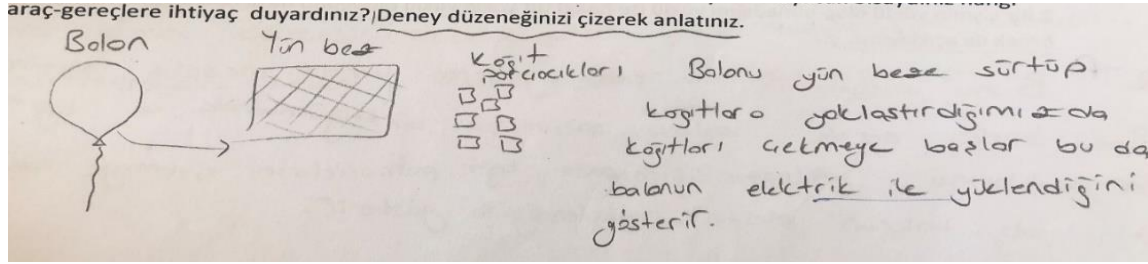 araç-gereçlere ihtiyaç duyardınız? Deney düzeneğinizi çizerek anlatınız.
Balon
Yün bez
Kağıt
parçacıkları
Balonu yün beze sürtüp
kağıtlara yaklaştırdığımızda
kağıtları çekmeye başlar bu da
balonun elektrik ile yüklendiğini
gösterir.